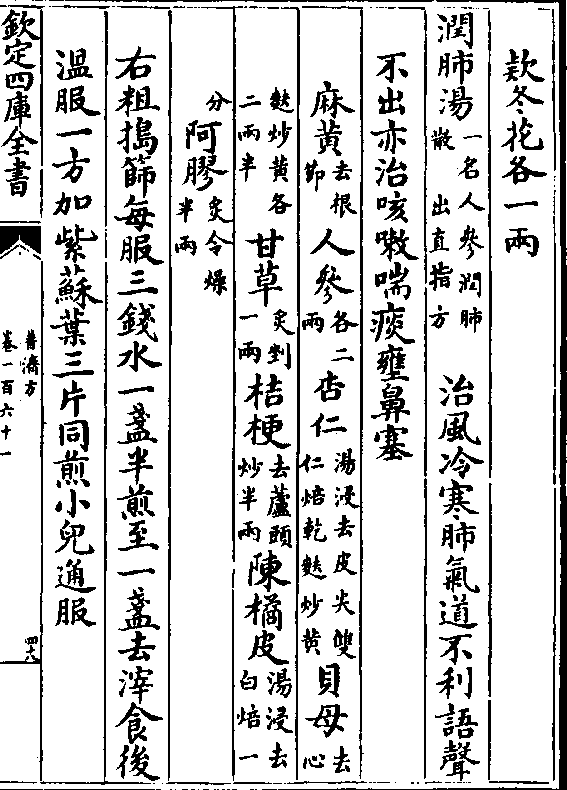 欵冬花各一兩
潤肺湯一名人參潤肺散出直指方 治風冷寒肺氣道不利語聲
不出亦治咳嗽喘痰壅鼻塞
麻黄去根節人參各二兩杏仁湯浸去皮尖雙仁焙乾麩炒黄貝母去心
麩炒黄各二兩半甘草炙剉一兩桔梗去蘆頭炒半兩陳橘皮湯浸去白焙一
分阿膠炙令燥半兩
右粗搗篩每服三錢水一盞半煎至一盞去滓食後
溫服一方加紫蘇葉三片同煎小兒通服
欽定四庫全書
普濟方
卷一百六十一
四十八